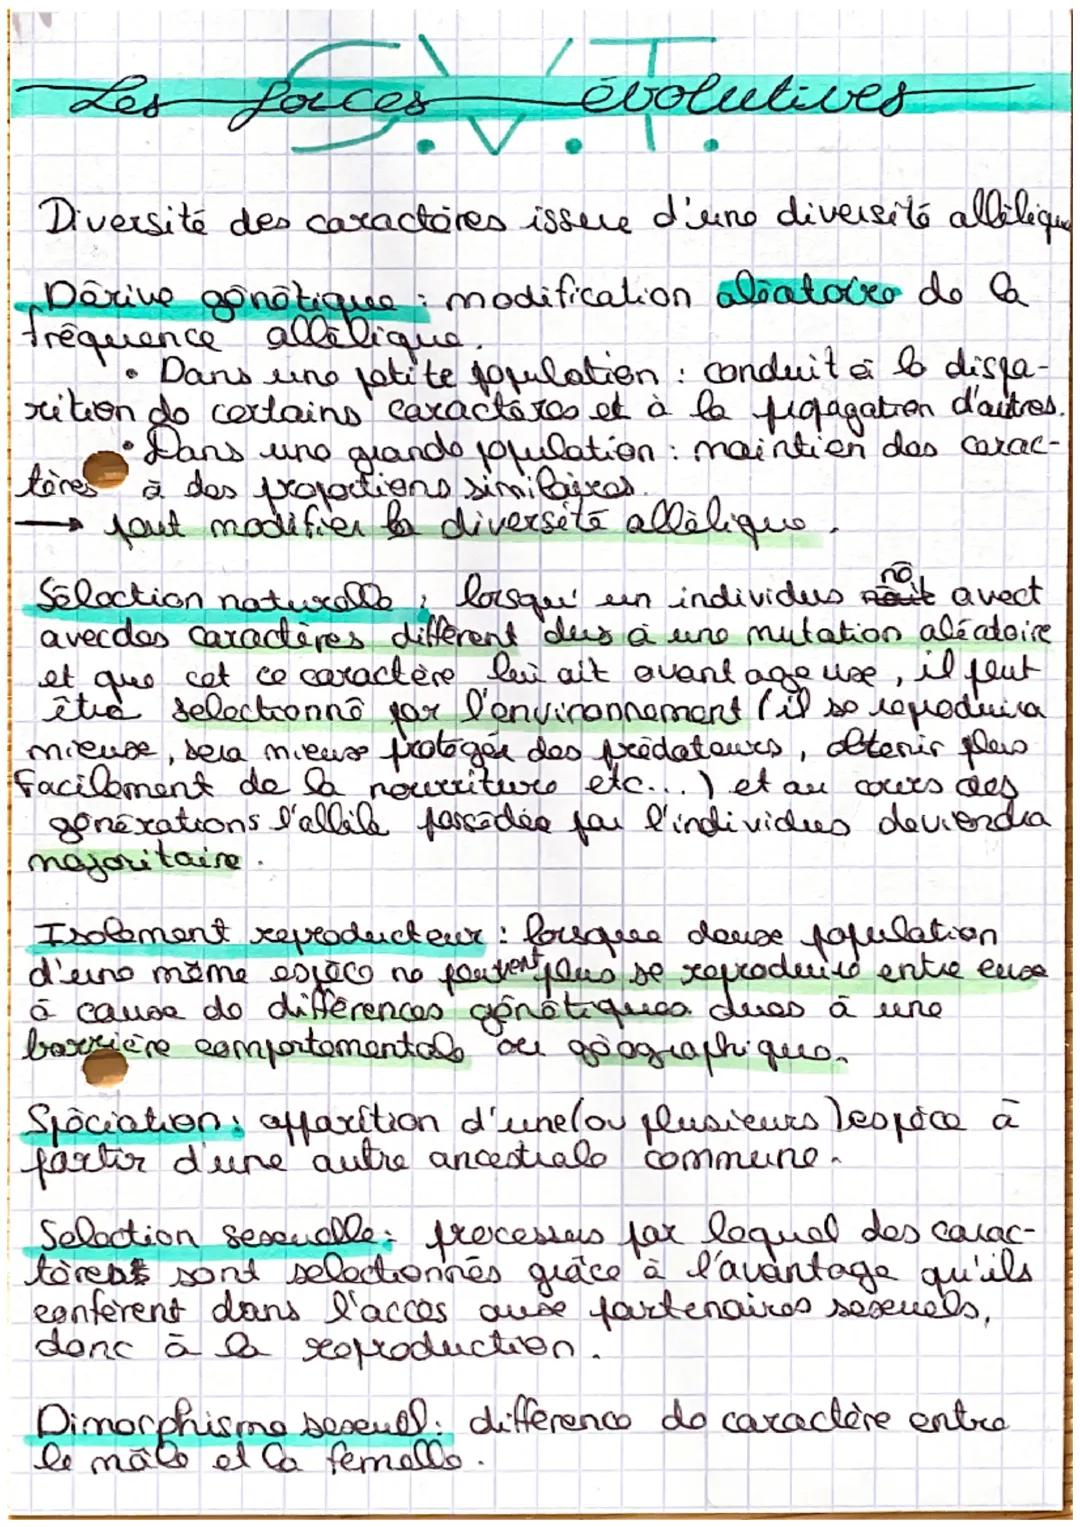 S.V.T.
Les forces évolutives
Diversité des caractères issue d'une diversité allélique
Dérive génétique : modification aléatoire de la
fréquence allélique.
• Dans une petite population : conduit à la dispa-
rition de certains caractères et à la propagation d'autres.
• Dans une grande population : maintien des carac-
tères à des proportions similaires.
→ peut modifier la diversité allèlique.
Sélection naturelle : lorsqu' un individus né avect
avec des caractères différent dus à une mutation aléatoire
et que cet ce caractère lui ait avantageuxe, il peut
être selectionné par l'environnement (il se reproduira
mieuxe, sera mieux protégér des prédateurs, obtenir plus
facilement de la nourriture etc...) et au cours des
générations l'allèle possédée par l'individus deviendra
majoritaire.
Isolement reproducteur : lorsque deuxe population
d'une même espèce ne peuvent plus se reproduire entre euxe
à cause de différences génétiques dues à une
barrière comportementale ou géographique.
Spéciation : apparition d'une (ou plusieurs) espèce à
partir d'une autre ancestrale commune.
Selection sexuelle : processus par lequel des carac-
tères sont selectionnés grâce à l'avantage qu'ils
confèrent dans l'accès auxe partenaires sexuels,
donc à la reproduction.
Dimorphisme sexuel : différence de caractère entre
le mâle et la femelle.